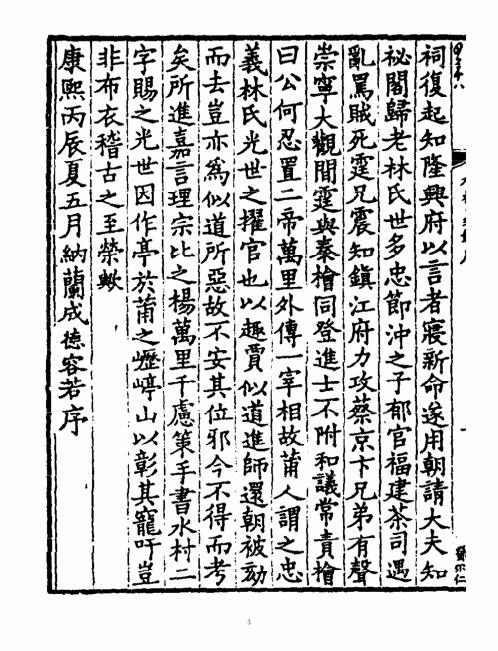 祠復起知隆興府以言者寢新命遂用朝請大夫知
祕閣歸老林氏世多忠節沖之子郁官福建茶司遇
亂罵賊死霆兄震知鎮江府力攻蔡京卞兄弟有聲
崇寧大觀間霆與秦檜同登進士不附和議常責檜
曰公何忍置二帝萬里外傳一宰相故莆人謂之忠
義林氏光世之擢官也以趣賈似道進師還朝被劾
而去豈亦爲似道所惡故不安其位邪今不得而考
矣所進嘉言理宗比之楊萬里千慮策手書水村二
字賜之光世因作亭於莆之壢崢山以彰其寵吁豈
非布衣稽古之至榮歟
康熙丙辰夏五月納蘭成德容若序
3